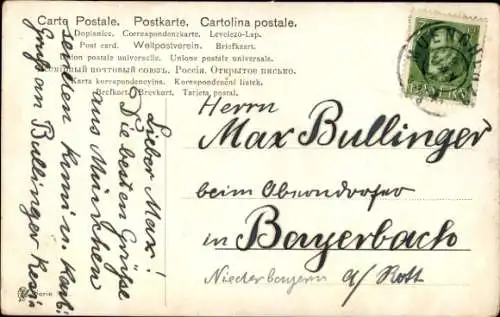 Carte Postale. Postkarte. Cartolina postale.
Dopisnice. Correspondenzkarte. Levelezo-Lap.
Post card. Weltpostverein. Briefkaart.
Union postale universelle. Unione postale universale.
Всемірный почтовый союзъ. Россія. Открытое письмо.
Karta korespondencyjna. Korespondenční lístek.
Brefkort. Brevkort. Tarjeta postal.
Herrn
Max Bullinger
beim Oberndorfer
in Bayerbach
Niederbayern a/ Rott
Lieber Max!
Die besten Grüße
aus München
senden
Gruß an Bullinger Resi
BAYERN